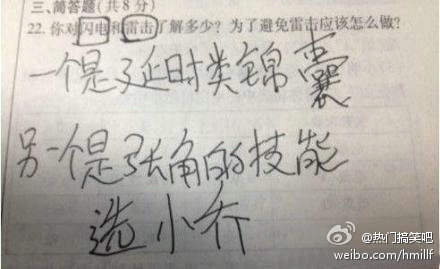 三、简答题(共8分)
22. 你对闪电和雷击了解多少？为了避免雷击应该怎么做？
一个是延时类锦囊
另一个是张角的技能
选小乔
@热门搞笑吧
weibo.com/hmillf